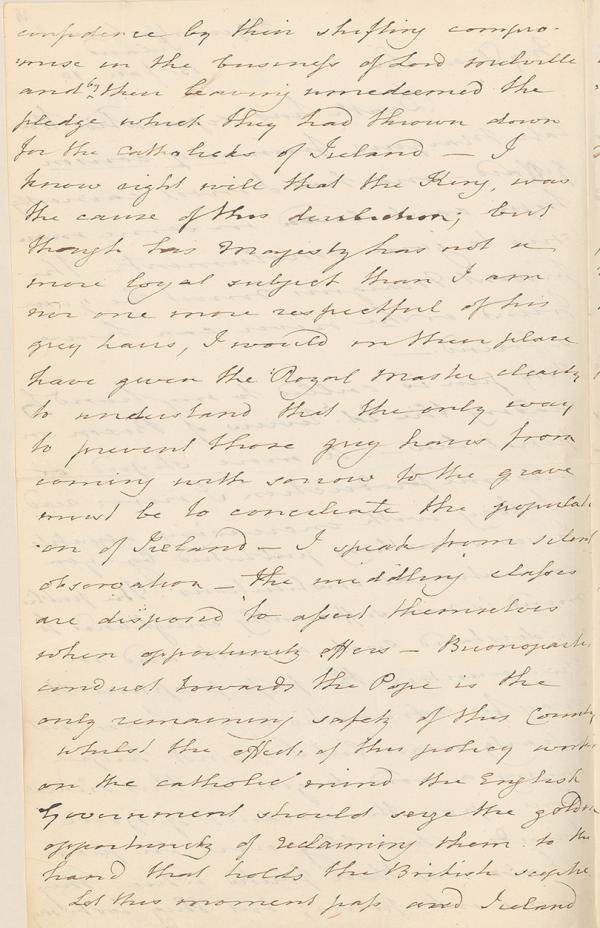 confidence by their shifting compro-
mise in the business of Lord Melville
and by their leaving unredeemed the
pledge which they had thrown down
for the catholicks of Ireland — I
know right well that the King, was
the cause of this dereliction; but
though his Majesty has not a
more loyal subject than I am
nor one more respectful of his
grey hairs, I would in their place
have given the Royal Master clearly
to understand that the only way
to prevent those grey hairs from
coming with sorrow to the grave
must be to conciliate the populati
on of Ireland — I speak from silent
observation — The middling classes
are disposed to assert themselves
when opportunity offers — Buonoparte
conduct towards the Pope is the
only remaining safety of this Country
whilst the effect, of this policy works
on the catholic mind the English
Government should seize the golden
opportunity of reclaiming them to the
hand that holds the British sceptre
Let this moment pass and Ireland